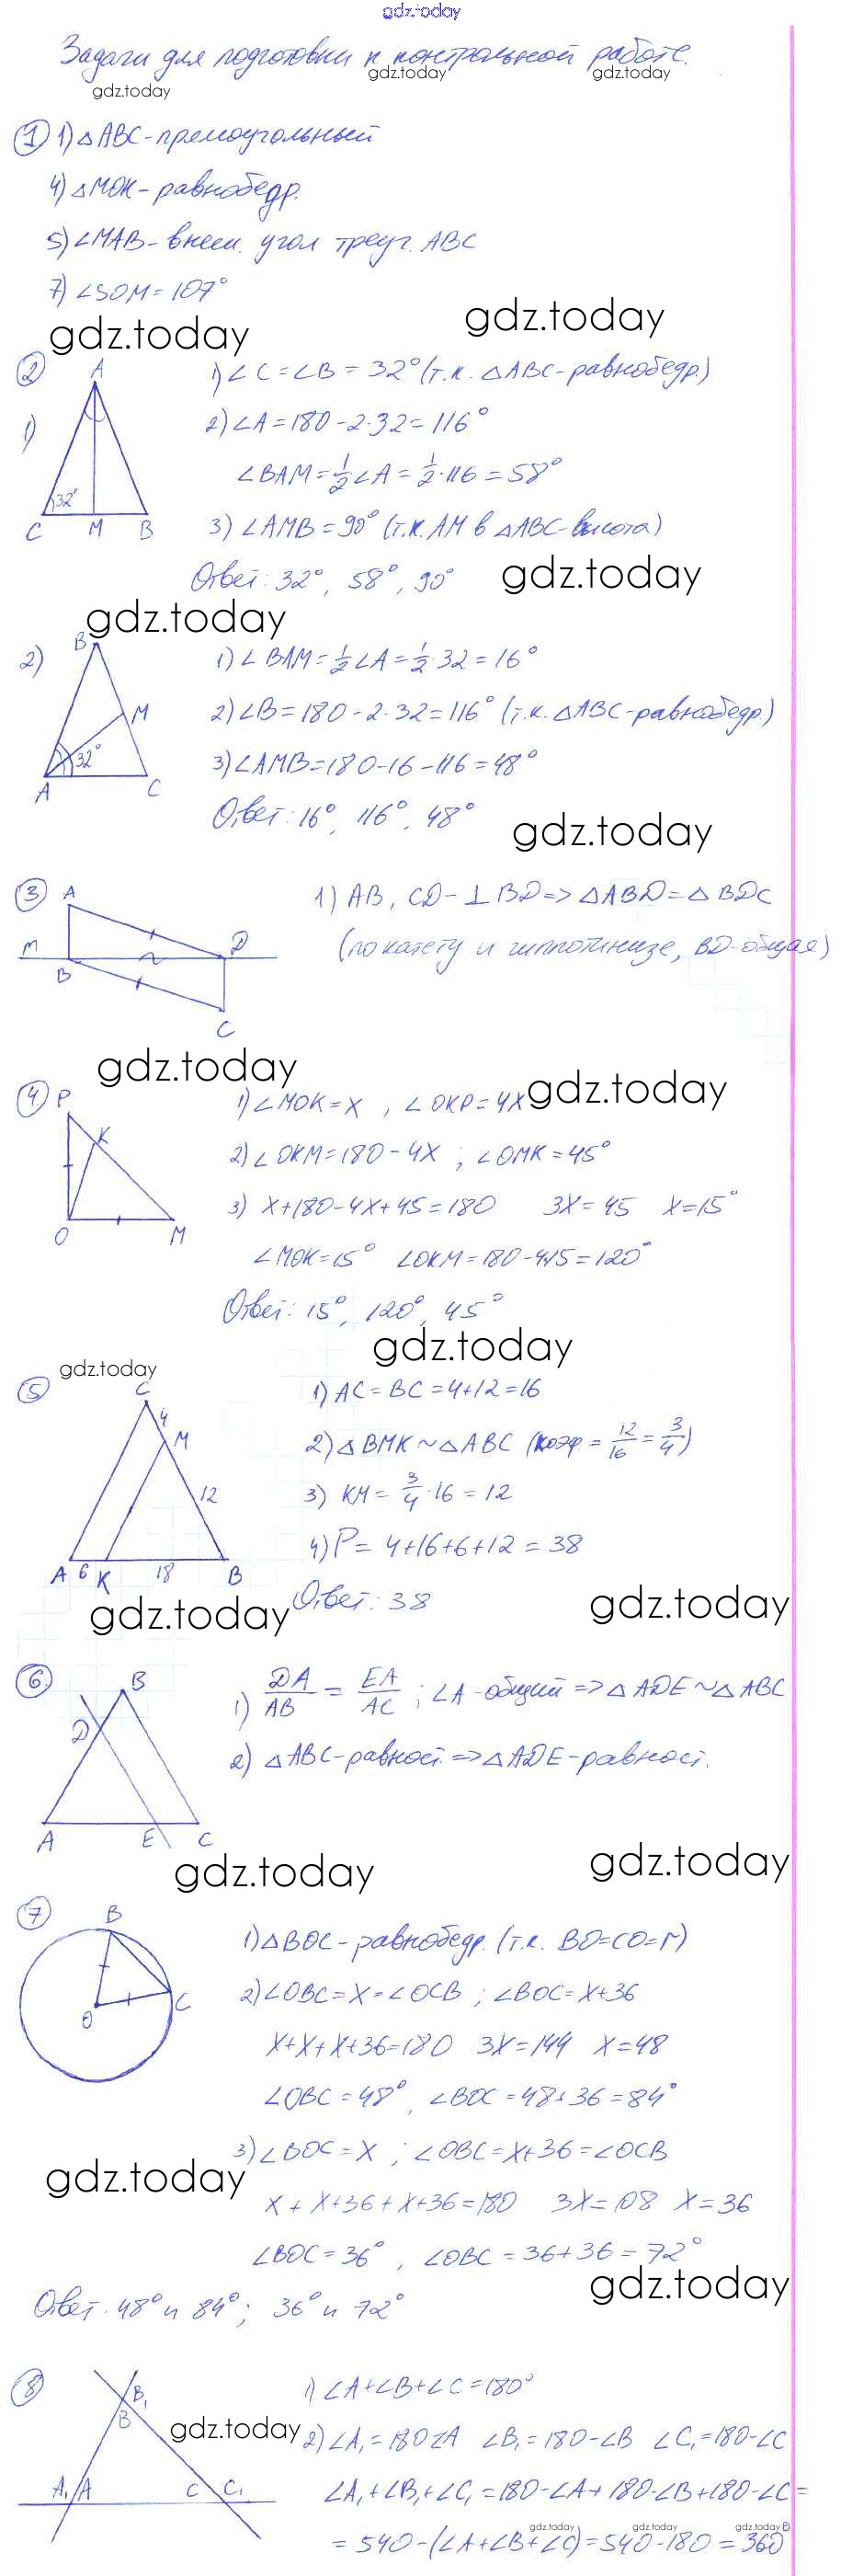 gdz.today
Задачи для подготовки к контрольной работе.
gdz.today gdz.today gdz.today
① 1) △ABC - прямоугольный
4) △MOK - равнобедр.
5) ∠MAB - внеш. угол треуг. ABC
7) ∠SOM = 107°
gdz.today gdz.today
② 1) ∠C = ∠B = 32° (т.к. △ABC - равнобедр.)
A
1) 2) ∠A = 180 - 2·32 = 116°
∠BAM = 1/2 ∠A = 1/2·116 = 58°
32°
C M B
3) ∠AMB = 90° (т.к. AM в △ABC - высота)
Ответ: 32°, 58°, 90° gdz.today
gdz.today
2) B 1) ∠BAM = 1/2 ∠A = 1/2·32 = 16°
M 2) ∠B = 180 - 2·32 = 116° (т.к. △ABC - равнобедр.)
32° 3) ∠AMB = 180 - 16 - 116 = 48°
A C
Ответ: 16°, 116°, 48° gdz.today
③ A 1) AB, CD - ⊥ BD => △ABD = △BDC
M B D (по катету и гиппотинизе, BD - общая)
C
gdz.today gdz.today
④ P 1) ∠MOK = x , ∠OKP = 4x
K 2) ∠OKM = 180 - 4x ; ∠OMK = 45°
3) x + 180 - 4x + 45 = 180 3x = 45 x = 15°
O M
∠MOK = 15° ∠OKM = 180 - 4·15 = 120°
Ответ: 15°, 120°, 45°
gdz.today
gdz.today
⑤ C 1) AC = BC = 4 + 12 = 16
4 M 2) △BMK ~ △ABC (коэф = 12/16 = 3/4)
12 3) KM = 3/4·16 = 12
4) P = 4 + 16 + 6 + 12 = 38
A 6 K 18 B
Ответ: 38
gdz.today gdz.today
⑥ B 1) DA/AB = EA/AC ; ∠A - общий => △ADE ~ △ABC
D 2) △ABC - равност. => △ADE - равност.
A E C
gdz.today gdz.today
⑦ B 1) △BOC - равнобедр. (т.к. BO = CO = r)
O C 2) ∠OBC = x = ∠OCB ; ∠BOC = x + 36
x + x + x + 36 = 180 3x = 144 x = 48
∠OBC = 48°, ∠BOC = 48 + 36 = 84°
3) ∠BOC = x ; ∠OBC = x + 36 = ∠OCB
gdz.today
x + x + 36 + x + 36 = 180 3x = 108 x = 36
∠BOC = 36°, ∠OBC = 36 + 36 = 72°
gdz.today
Ответ: 48° и 84°; 36° и 72°
⑧ 1) ∠A + ∠B + ∠C = 180°
B₁ B
gdz.today
2) ∠A₁ = 180 ∠A ∠B₁ = 180 - ∠B ∠C₁ = 180 - ∠C
A₁ A C C₁
∠A₁ + ∠B₁ + ∠C₁ = 180 - ∠A + 180 - ∠B + 180 - ∠C =
gdz.today gdz.today gdz.today
= 540 - (∠A + ∠B + ∠C) = 540 - 180 = 360°